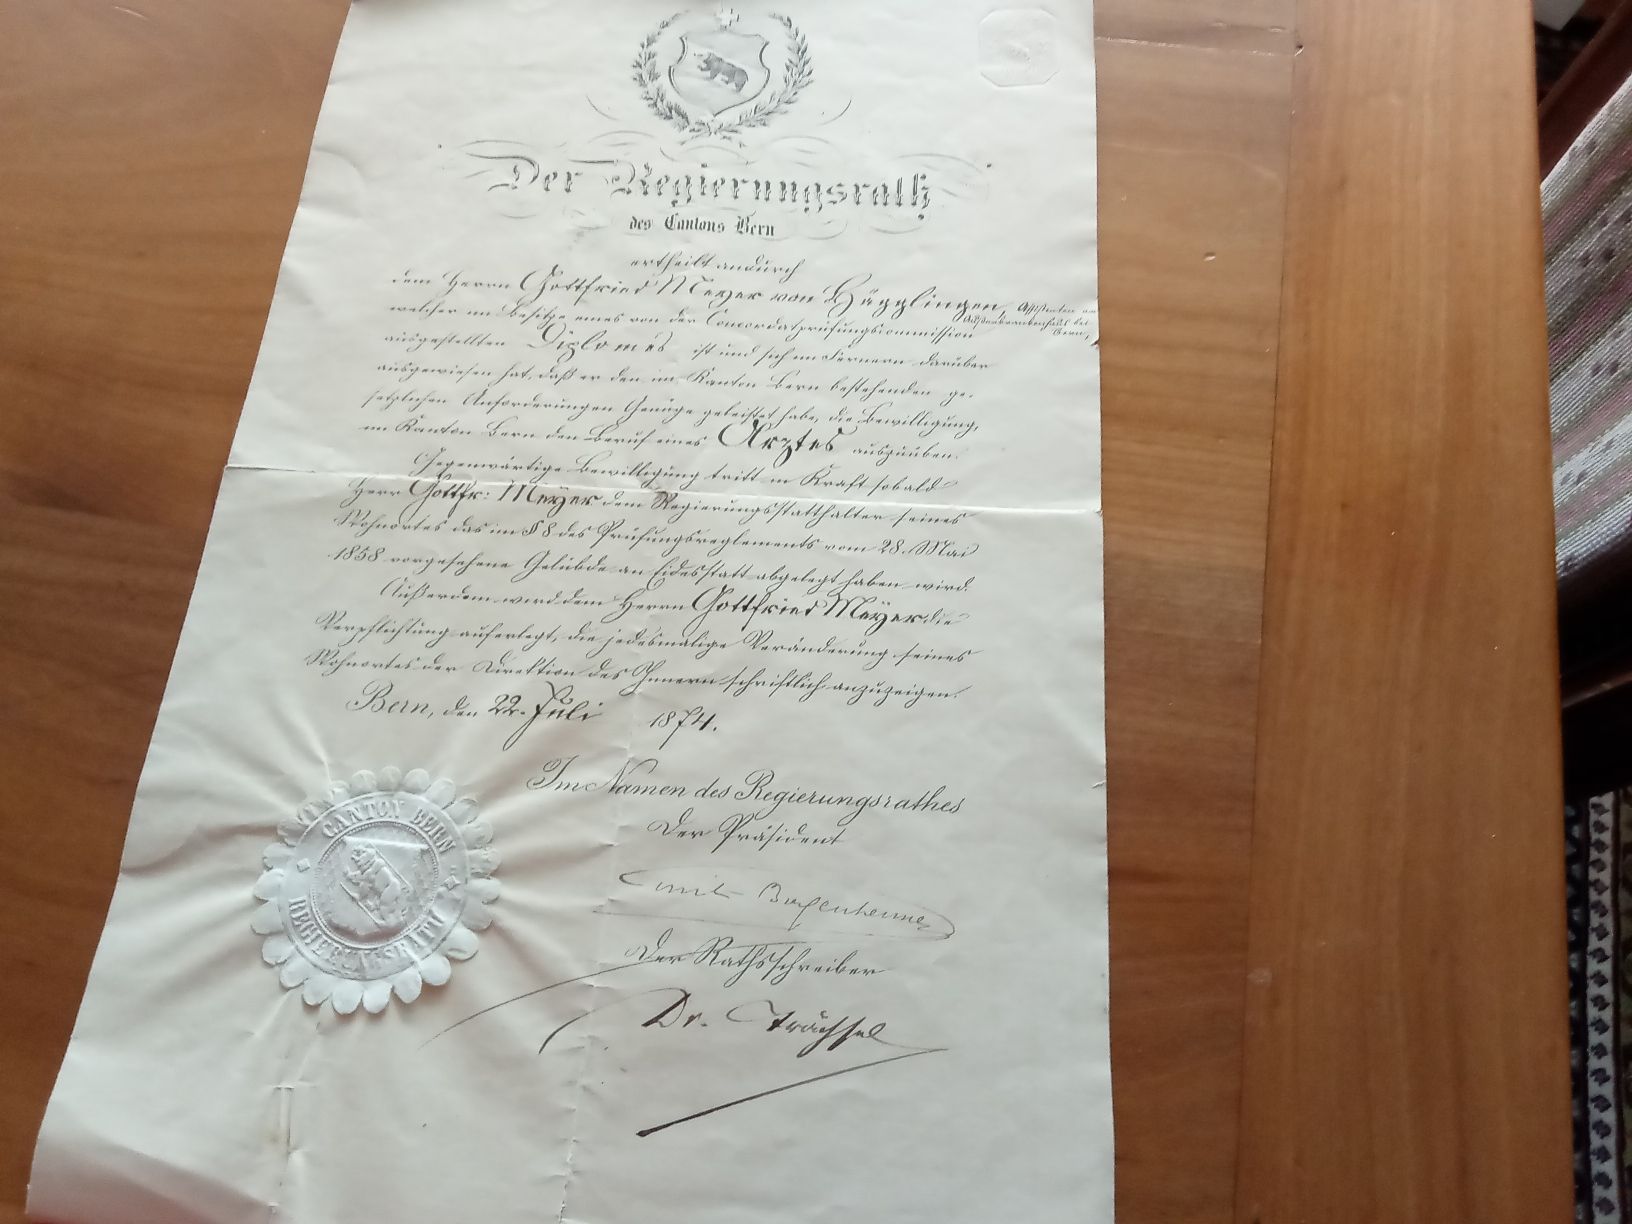 Der Regierungsrath
des Cantons Bern
ertheilt andurch
dem Herrn Gottfried Meyer von Hägglingen, Assistenten am
Außerkrankenhaus bei
Bern,
welcher im Besitze eines von der Concordatsprüfungscommission
ausgestellten Diplomes ist und sich im Fernern darüber
ausgewiesen hat, daß er den im Kanton Bern bestehenden ge-
setzlichen Anforderungen Genüge geleistet habe, die Bewilligung,
im Kanton Bern den Beruf eines Arztes auszuüben.
Gegenwärtige Bewilligung tritt in Kraft sobald
Herr Gottfr: Meyer dem Regierungsstatthalter seines
Wohnortes das im § 8 des Prüfungsreglements vom 28. Mai
1858 vorgesehene Gelübde an Eidesstatt abgelegt haben wird.
Außerdem wird dem Herrn Gottfried Meyer die
Verpflichtung auferlegt, die jedesmalige Veränderung seines
Wohnortes der Direktion des Innern schriftlich anzuzeigen.
Bern, den 22. Juli 1874.
Im Namen des Regierungsrathes
Der Präsident
Der Rathsschreiber
Dr. Trächsel
CANTON BERN
REGIERUNGSRATH